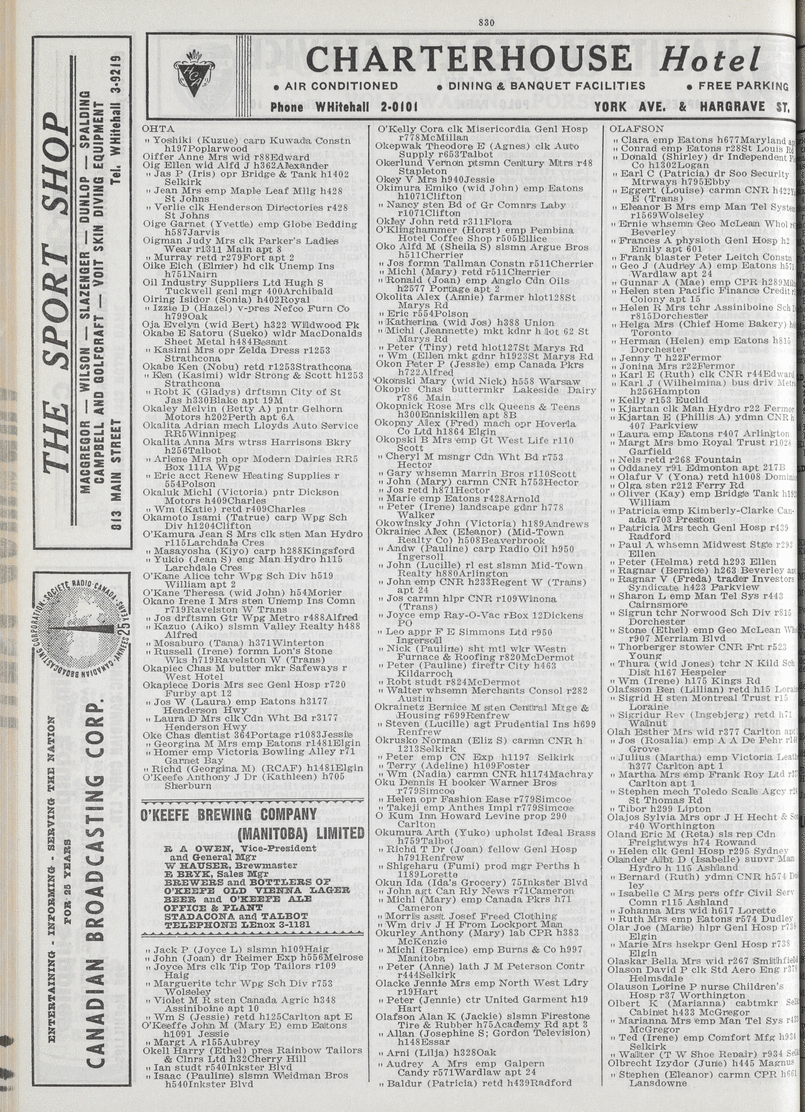 830
CHARTERHOUSE Hotel
• AIR CONDITIONED • DINING & BANQUET FACILITIES • FREE PARKING
Phone WHitehall 2-0101 YORK AVE. & HARGRAVE ST,
THE SPORT SHOP
MACGREGOR — WILSON — SLAZENGER — DUNLOP — SPALDING
CAMPBELL AND GOLFCRAFT — VOIT SKIN DIVING EQUIPMENT
813 MAIN STREET Tel. WHitehall 3-9219
ENTERTAINING - INFORMING - SERVING THE NATION
FOR 25 YEARS
CANADIAN BROADCASTING CORP.
OHTA
" Yoshiki (Kuzue) carp Kuwada Constn
h197Poplarwood
Oiffer Anne Mrs wid r88Edward
Oig Ellen wid Alfd J h362Alexander
" Jas P (Iris) opr Bridge & Tank h1402
Selkirk
" Jean Mrs emp Maple Leaf Mllg h428
St Johns
" Verlie clk Henderson Directories r428
St Johns
Oige Garnet (Yvette) emp Globe Bedding
h587Jarvis
Oigman Judy Mrs clk Parker's Ladies
Wear r1311 Main apt 8
" Murray retd r279Fort apt 2
Oike Eich (Elmer) hd clk Unemp Ins
h751Nairn
Oil Industry Suppliers Ltd Hugh S
Tuckwell genl mgr 400Archibald
Oiring Isidor (Sonia) h402Royal
" Izzie D (Hazel) v-pres Nefco Furn Co
h799Oak
Oja Evelyn (wid Bert) h322 Wildwood Pk
Okabe E Satoru (Sueko) wldr MacDonalds
Sheet Metal h484Besant
" Kasimi Mrs opr Zelda Dress r1253
Strathcona
Okabe Ken (Nobu) retd r1253Strathcona
" Ken (Kasimi) wldr Strong & Scott h1253
Strathcona
" Robt K (Gladys) drftsmn City of St
Jas h330Blake apt 19M
Okaley Melvin (Betty A) pntr Gelhorn
Motors h202Perth apt 6A
Okalita Adrian mech Lloyds Auto Service
RR5Winnipeg
Okalita Anna Mrs wtrss Harrisons Bkry
h256Talbot
" Arlene Mrs ph opr Modern Dairies RR5
Box 111A Wpg
" Eric acct Renew Heating Supplies r
554Polson
Okaluk Michl (Victoria) pntr Dickson
Motors h409Charles
" Wm (Katie) retd r409Charles
Okamoto Isami (Tatrue) carp Wpg Sch
Div h1204Clifton
O'Kamura Jean S Mrs clk sten Man Hydro
r115Larchdale Cres
" Masayosha (Kiyo) carp h288Kingsford
" Yukio (Jean S) eng Man Hydro h115
Larchdale Cres
O'Kane Alice tchr Wpg Sch Div h519
William apt 2
O'Kane Theresa (wid John) h54Morier
Okano Irene I Mrs sten Unemp Ins Comn
r719Ravelston W Trans
" Jos drftsmn Gtr Wpg Metro r488Alfred
" Kazuo (Aiko) slsmn Valley Realty h488
Alfred
" Mosaburo (Tana) h371Winterton
" Russell (Irene) formn Lon's Stone
Wks h719Ravelston W (Trans)
Okapiec Chas M butter mkr Safeways r
West Hotel
Okapiece Doris Mrs sec Genl Hosp r720
Furby apt 12
" Jos W (Laura) emp Eatons h3177
Henderson Hwy
" Laura D Mrs clk Cdn Wht Bd r3177
Henderson Hwy
Oke Chas dentist 364Portage r1083Jessie
" Georgina M Mrs emp Eatons r1481Elgin
" Homer emp Victoria Bowling Alley r71
Garnet Bay
" Richd (Georgina M) (RCAF) h1481Elgin
O'Keefe Anthony J Dr (Kathleen) h705
Sherburn
O'KEEFE BREWING COMPANY
(MANITOBA) LIMITED
R A OWEN, Vice-President
and General Mgr
W HAUSER, Brewmaster
E BRYK, Sales Mgr
BREWERS and BOTTLERS OF
O'KEEFE OLD VIENNA LAGER
BEER and O'KEEFE ALE
OFFICE & PLANT
STADACONA and TALBOT
TELEPHONE LEnox 3-1181
" Jack P (Joyce L) slsmn h109Haig
" John (Joan) dr Reimer Exp h556Melrose
" Joyce Mrs clk Tip Top Tailors r109
Haig
" Marguerite tchr Wpg Sch Div r753
Wolseley
" Violet M R sten Canada Agric h348
Assiniboine apt 10
" Wm S (Jessie) retd h125Carlton apt E
O'Keeffe John M (Mary E) emp Eatons
h1091 Jessie
" Margt A r155Aubrey
Okell Harry (Ethel) pres Rainbow Tailors
& Clnrs Ltd h32Cherry Hill
" Ian studt r540Inkster Blvd
" Isaac (Pauline) slsmn Weidman Bros
h540Inkster Blvd
O'Kelly Cora clk Misericordia Genl Hosp
r778McMillan
Okepwak Theodore E (Agnes) clk Auto
Supply r653Talbot
Okerlund Vernon ptsmn Century Mtrs r48
Stapleton
Okey V Mrs h940Jessie
Okimura Emiko (wid John) emp Eatons
h1071Clifton
" Nancy sten Bd of Gr Comnrs Laby
r1071Clifton
Okley John retd r311Flora
O'Klinghammer (Horst) emp Pembina
Hotel Coffee Shop r505Ellice
Oko Alfd M (Sheila S) slsmn Argue Bros
h511Cherrier
" Jos formn Tallman Constn r511Cherrier
" Michl (Mary) retd r511Cherrier
" Ronald (Joan) emp Anglo Cdn Oils
h2577 Portage apt 2
Okolita Alex (Annie) farmer hlot128St
Marys Rd
" Eric r554Polson
" Katherina (wid Jos) h388 Union
" Michl (Jeannette) mkt kdnr h lot 62 St
Marys Rd
" Peter (Tiny) retd hlot127St Marys Rd
" Wm (Ellen) mkt gdnr h1923St Marys Rd
Okon Peter P (Jessie) emp Canada Pkrs
h722Alfred
Okonski Mary (wid Nick) h558 Warsaw
Okopic Chas buttermkr Lakeside Dairy
r786 Main
Okopnick Rose Mrs clk Queens & Teens
h300Enniskillen apt 8B
Okopny Alex (Fred) mach opr Hoverla
Co Ltd h1864 Elgin
Okopski B Mrs emp Gt West Life r110
Scott
" Cheryl M msngr Cdn Wht Bd r753
Hector
" Gary whsemn Marrin Bros r110Scott
" John (Mary) carmn CNR h753Hector
" Jos retd h871Hector
" Marie emp Eatons r428Arnold
" Peter (Irene) landscape gdnr h778
Walker
Okowinsky John (Victoria) h189Andrews
Okrainec Alex (Eleanor) (Mid-Town
Realty Co) h508Beaverbrook
" Andw (Pauline) carp Radio Oil h950
Ingersoll
" John (Lucille) rl est slsmn Mid-Town
Realty h880Arlington
" John emp CNR h233Regent W (Trans)
apt 24
" Jos carmn hlpr CNR r109Winona
(Trans)
" Joyce emp Ray-O-Vac rBox 12Dickens
PO
" Leo appr F E Simmons Ltd r950
Ingersoll
" Nick (Pauline) sht mtl wkr Westn
Furnace & Roofing r820McDermot
" Peter (Pauline) firefitr City h463
Kildarroch
" Robt studt r824McDermot
" Walter whsemn Merchants Consol r282
Austin
Okrainetz Bernice M sten Central Mtge &
Housing r699Renfrew
" Steven (Lucille) agt Prudential Ins h699
Renfrew
Okrusko Norman (Eliz S) carmn CNR h
1213Selkirk
" Peter emp CN Exp h1197 Selkirk
" Terry (Adeline) h109Foster
" Wm (Nadia) carmn CNR h1174Machray
Oku Dennis H booker Warner Bros
r779Simcoe
" Helen opr Fashion Ease r779Simcoe
" Takeji emp Anthes Impl r779Simcoe
O Kum Inn Howard Levine prop 290
Carlton
Okumura Arth (Yuko) upholst Ideal Brass
h759Talbot
" Richd T Dr (Joan) fellow Genl Hosp
h791Renfrew
" Shigeharu (Fumi) prod mgr Perths h
1189Lorette
Okun Ida (Ida's Grocery) 75Inkster Blvd
" John agt Can Rly News r71Cameron
" Michl (Mary) emp Canada Pkrs h71
Cameron
" Morris assit Josef Freed Clothing
" Wm driv J H From Lockport Man
Okurley Anthony (Mary) lab CPR h383
McKenzie
" Michl (Bernice) emp Burns & Co h997
Manitoba
" Peter (Anne) lath J M Peterson Contr
r444Selkirk
Olacke Jennie Mrs emp North West Ldry
r19Hart
" Peter (Jennie) ctr United Garment h19
Hart
Olafson Alan K (Jackie) slsmn Firestone
Tire & Rubber h75Academy Rd apt 3
" Allan (Josephine S; Gordon Television)
h148Essar
" Arni (Lilja) h328Oak
" Audrey A Mrs emp Galpern
Candy r571Wardlaw apt 24
" Baldur (Patricia) retd h439Radford
OLAFSON
" Clara emp Eatons h677Maryland
" Conrad emp Eatons r28St Louis Rd
" Donald (Shirley) dr Independent
Co h1302Logan
" Earl C (Patricia) dr Soo Security
Mtrways h795Ebby
" Eggert (Louise) carmn CNR
E (Trans)
" Eleanor B Mrs emp Man Tel System
r1569Wolseley
" Ernie whsemn Geo McLean Whol
Beverley
" Frances A physioth Genl Hosp
Emily apt 601
" Frank blaster Peter Leitch Constn
" Geo J (Audrey A) emp Eatons h571
Wardlaw apt 24
" Gunnar A (Mae) emp CPR
" Helen sten Pacific Finance Credit
Colony apt 15
" Helen R Mrs tchr Assiniboine Sch
r815Dorchester
" Helga Mrs (Chief Home Bakery)
Toronto
" Herman (Helen) emp Eatons h815
Dorchester
" Jenny T h22Fermor
" Jonina Mrs r22Fermor
" Karl E (Ruth) clk CNR r44Edward
" Karl J (Wilhelmina) bus driv
h256Hampton
" Kelly r153 Euclid
" Kjartan clk Man Hydro r22 Fermor
" Kjartan E (Phillis A) ydmn CNR
407 Parkview
" Laura emp Eatons r407 Arlington
" Margt Mrs bmo Royal Trust
Garfield
" Nels retd r268 Fountain
" Oddaney r91 Edmonton apt 217B
" Olafur V (Yona) retd h1008
" Olga sten r212 Ferry Rd
" Oliver (Kay) emp Bridge Tank
William
" Patricia emp Kimberly-Clarke Can-
ada r703 Preston
" Patricia Mrs tech Genl Hosp r439
Radford
" Paul A whsemn Midwest Stge
Ellen
" Peter (Helma) retd h293 Ellen
" Ragnar (Bernice) h263 Beverley
" Ragnar V (Freda) trader Investors
Syndicate h423 Parkview
" Sharon L emp Man Tel Sys r443
Cairnsmore
" Sigrun tchr Norwood Sch Div r815
Dorchester
" Stone (Ethel) emp Geo McLean
r907 Merriam Blvd
" Thorberger stower CNR Frt r523
Young
" Thura (wid Jones) tchr N Kild Sch
Dist h167 Hespeler
" Wm (Irene) h175 Kings Rd
Olafsson Ben (Lillian) retd h15
" Sigrid H sten Montreal Trust r15
Loraine
" Sigridur Rev (Ingebjerg) retd h71
Walnut
Olah Esther Mrs wid r377 Carlton
" Jos (Rosalia) emp A A De Fehr
Grove
" Julius (Martha) emp Victoria
h377 Carlton apt 1
" Martha Mrs emp Frank Roy Ltd
Carlton apt 1
" Stephen mech Toledo Scale Agcy
St Thomas Rd
" Tibor h299 Lipton
Olajos Sylvia Mrs opr J H Hecht &
r40 Worthington
Oland Eric M (Reta) sls rep Cdn
Freightwys h74 Rowand
" Helen clk Genl Hosp r295 Sydney
Olander Albt D (Isabelle) supvr Man
Hydro h 115 Ashland
" Bernard (Ruth) ydmn CNR h574
ley
" Isabelle C Mrs pers offr Civil Serv
Comn r115 Ashland
" Johanna Mrs wid h617 Lorette
" Ruth Mrs emp Eatons r574 Dudley
Olar Joe (Marie) hlpr Genl Hosp r738
Elgin
" Marie Mrs hsekpr Genl Hosp r738
Elgin
Olaskar Bella Mrs wid r267 Smithfield
Olason David P clk Std Aero Eng
Helmsdale
Olauson Lorine P nurse Children's
Hosp r37 Worthington
Olbert K (Marianna) cabtmkr
Cabinet h433 McGregor
" Marianna Mrs emp Man Tel Sys
McGregor
" Ted (Irene) emp Comfort Mfg h934
Selkirk
" Walter (T W Shoe Repair) r934
Olbrecht Izydor (June) h445 Magnus
" Stephen (Eleanor) carmn CPR
Lansdowne